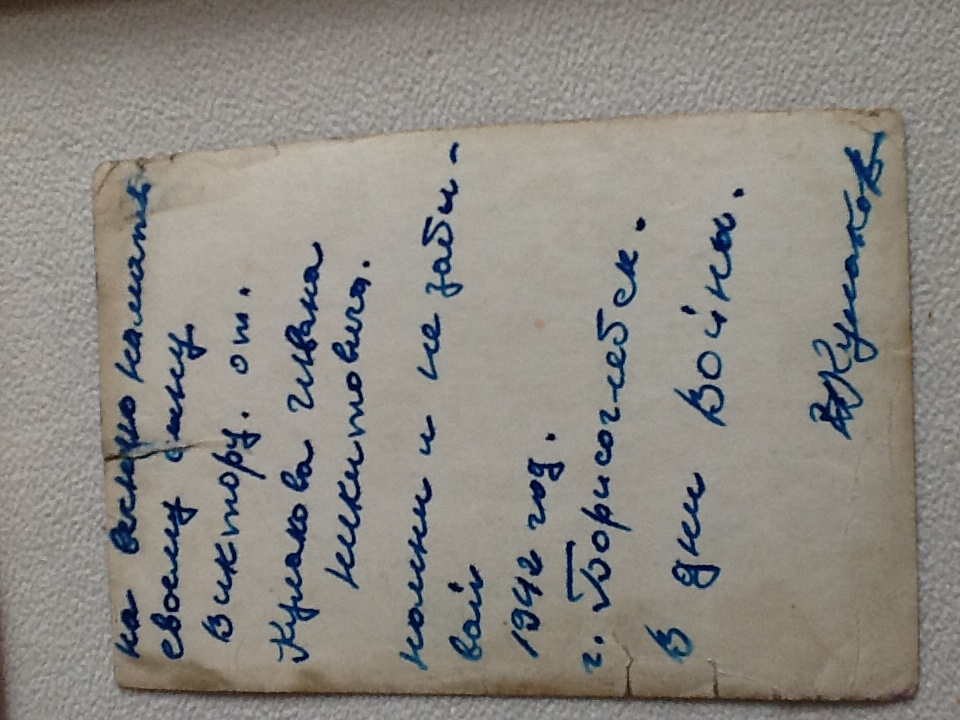 на вечную память
своему сыну
Виктору. от.
Кулакова Ивана
Никитовича.
помни и не забы-
вай
1942 год.
г. Борисоглебск.
В дни Войны.
Кулаков